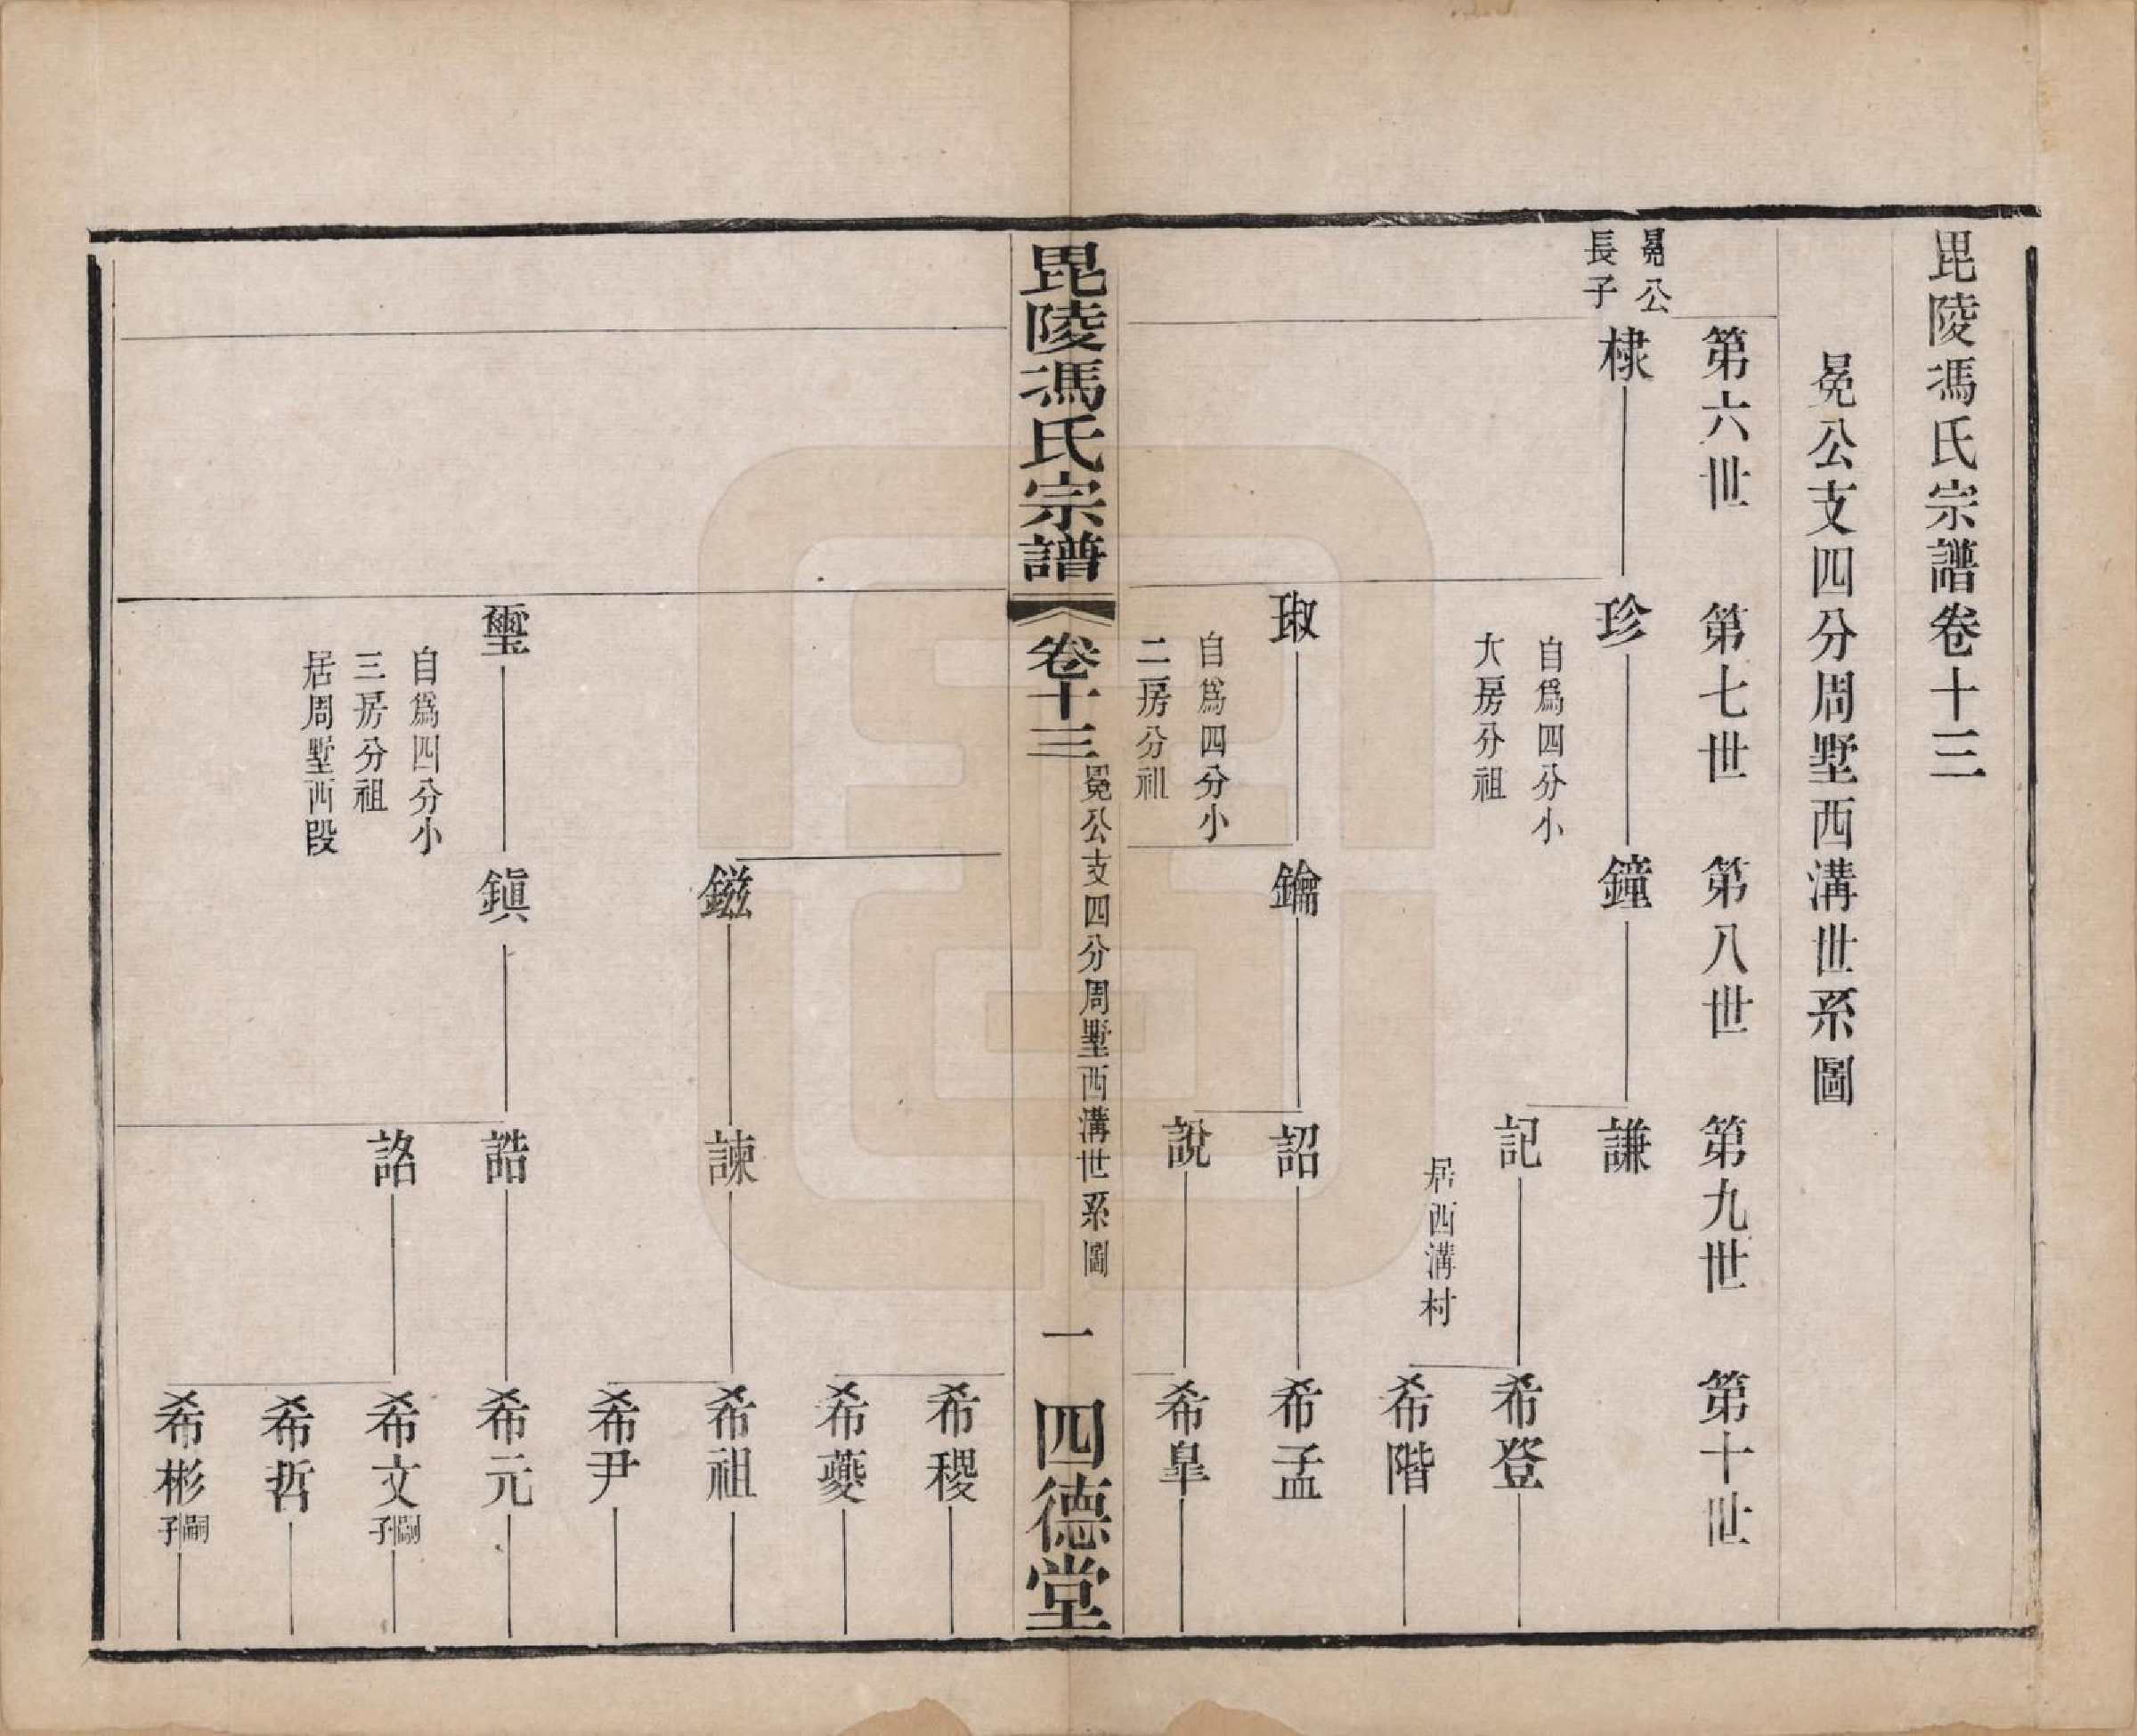 毘陵馮氏宗譜卷十三
冕公支四分周墅西溝世系圖
第六世　第七世　第八世　第九世　第十世
冕公
長子
棣　珍　鐘　謙
自爲四分小
大房分祖
記　希登
居西溝村
希階
琡　鑰　詔　希孟
自爲四分小
二房分祖
說　希皐
毘陵馮氏宗譜　卷十三　冕公支四分周墅西溝世系圖　一　四德堂
希稷
希夔
鎡　諫　希祖
希尹
璽　鎭　誥　希元
自爲四分小
三房分祖
居周墅西段
詻　希文嗣子
希哲
希彬嗣子